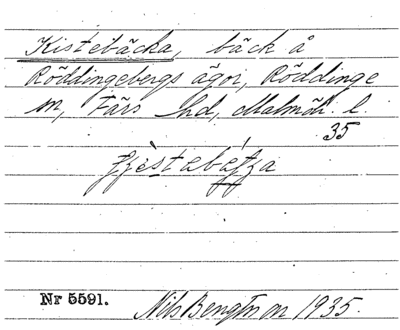 Kistebäcka, bäck å
Röddingebergs ägor, Röddinge
sn, Färs hd, Malmöh. l.
35
Nr 5591.
Nils Bengtsson 1935.